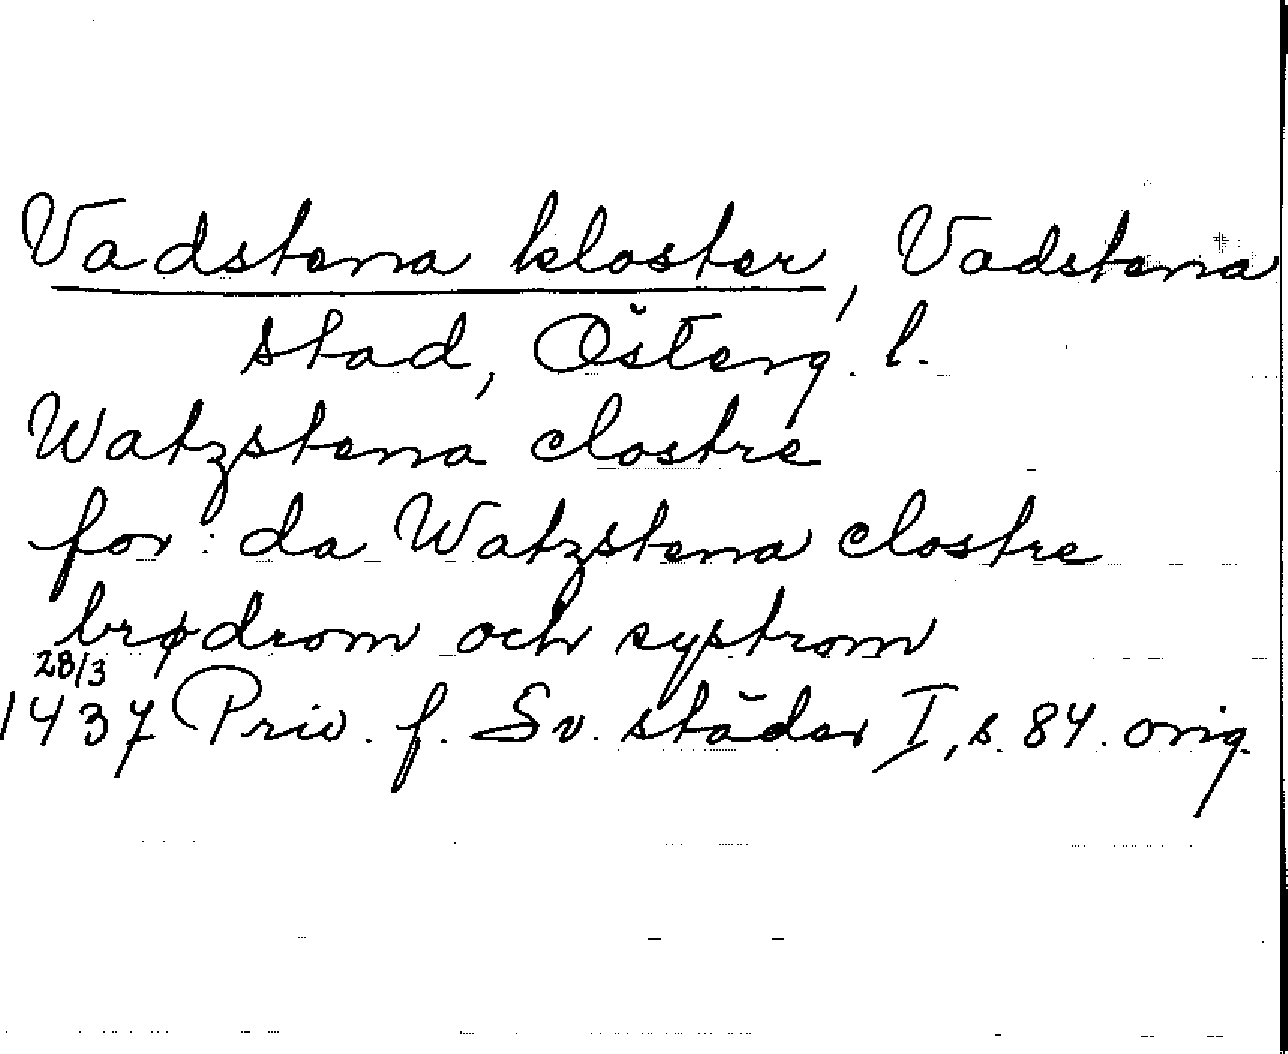 Vadstena kloster, Vadstena
stad, Österg. l.
Watzstena clostre
for: da Watzstena clostre
brødrom och systrom
28/3
1437 Priv. f. Sv. städer I, s. 84. orig.